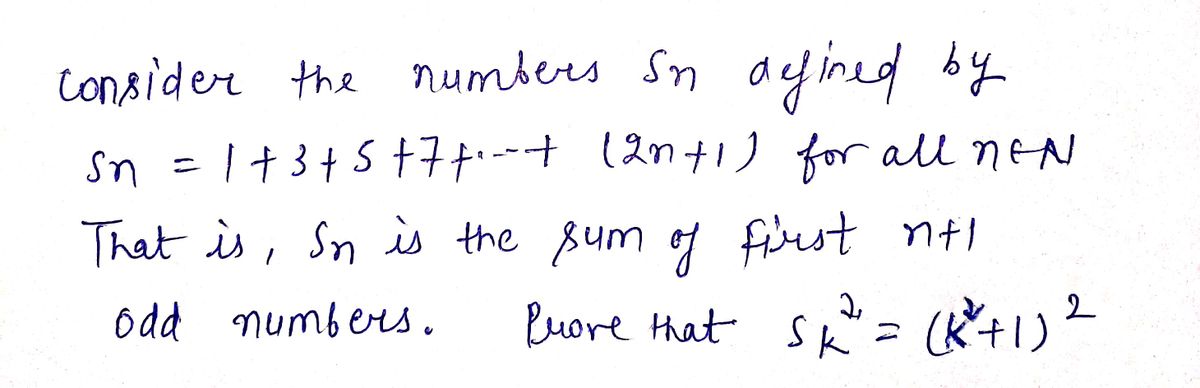 Consider the numbers Sn defined by
Sn = 1 + 3 + 5 + 7 + ... + (2n+1) for all n∈N
That is, Sn is the sum of first n+1
odd numbers. Prove that Sk² = (k²+1)²